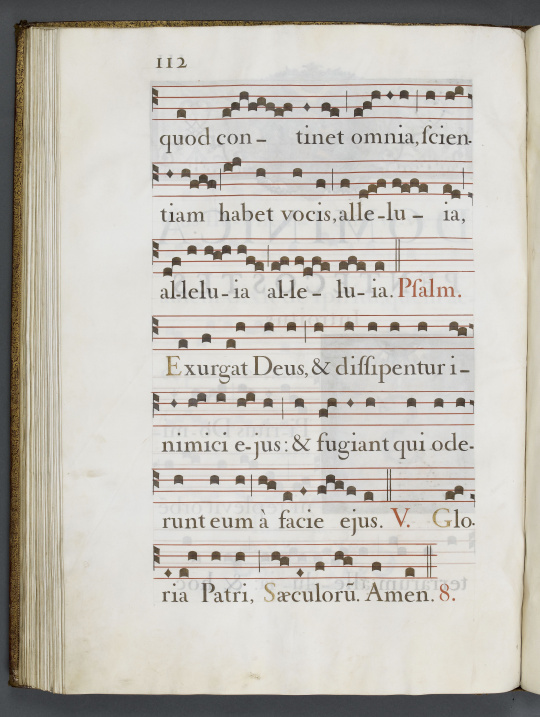 112
quod con- tinet omnia, ſcien-
tiam habet vocis, alle-lu- ia,
al-lelu-ia al-le- lu-ia. Pſalm.
Exurgat Deus, & diſſipentur i-
nimici e-jus: & fugiant qui ode-
runt eum à facie ejus. V. Glo-
ria Patri, Sæculorū. Amen. 8.